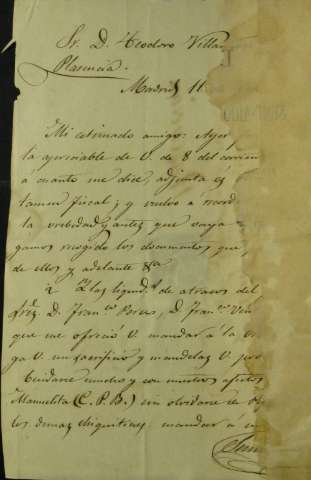 Sr. D. Teodoro Villa
Plasencia.
Madrid 11
Mi estimado amigo: Ayer
la apreciable de V. de 8 del corrien
á cuanto me dice, adjunta es
tamen fiscal; y vuelvo a record
la brevedad y antes que vaya
gamos recogido los documentos que,
de ellos y adelante &ca
las liquid.s de atrasos del
D. Fran.co D. Fran.co
que me ofreció V. mandar á la
ga V. un sacrificio y mandelas V. por
Cuidarse mucho y con muchos afectos
Manuelita (C. P. B.) sin olvidarse de
los demas chiquitines, mandar á